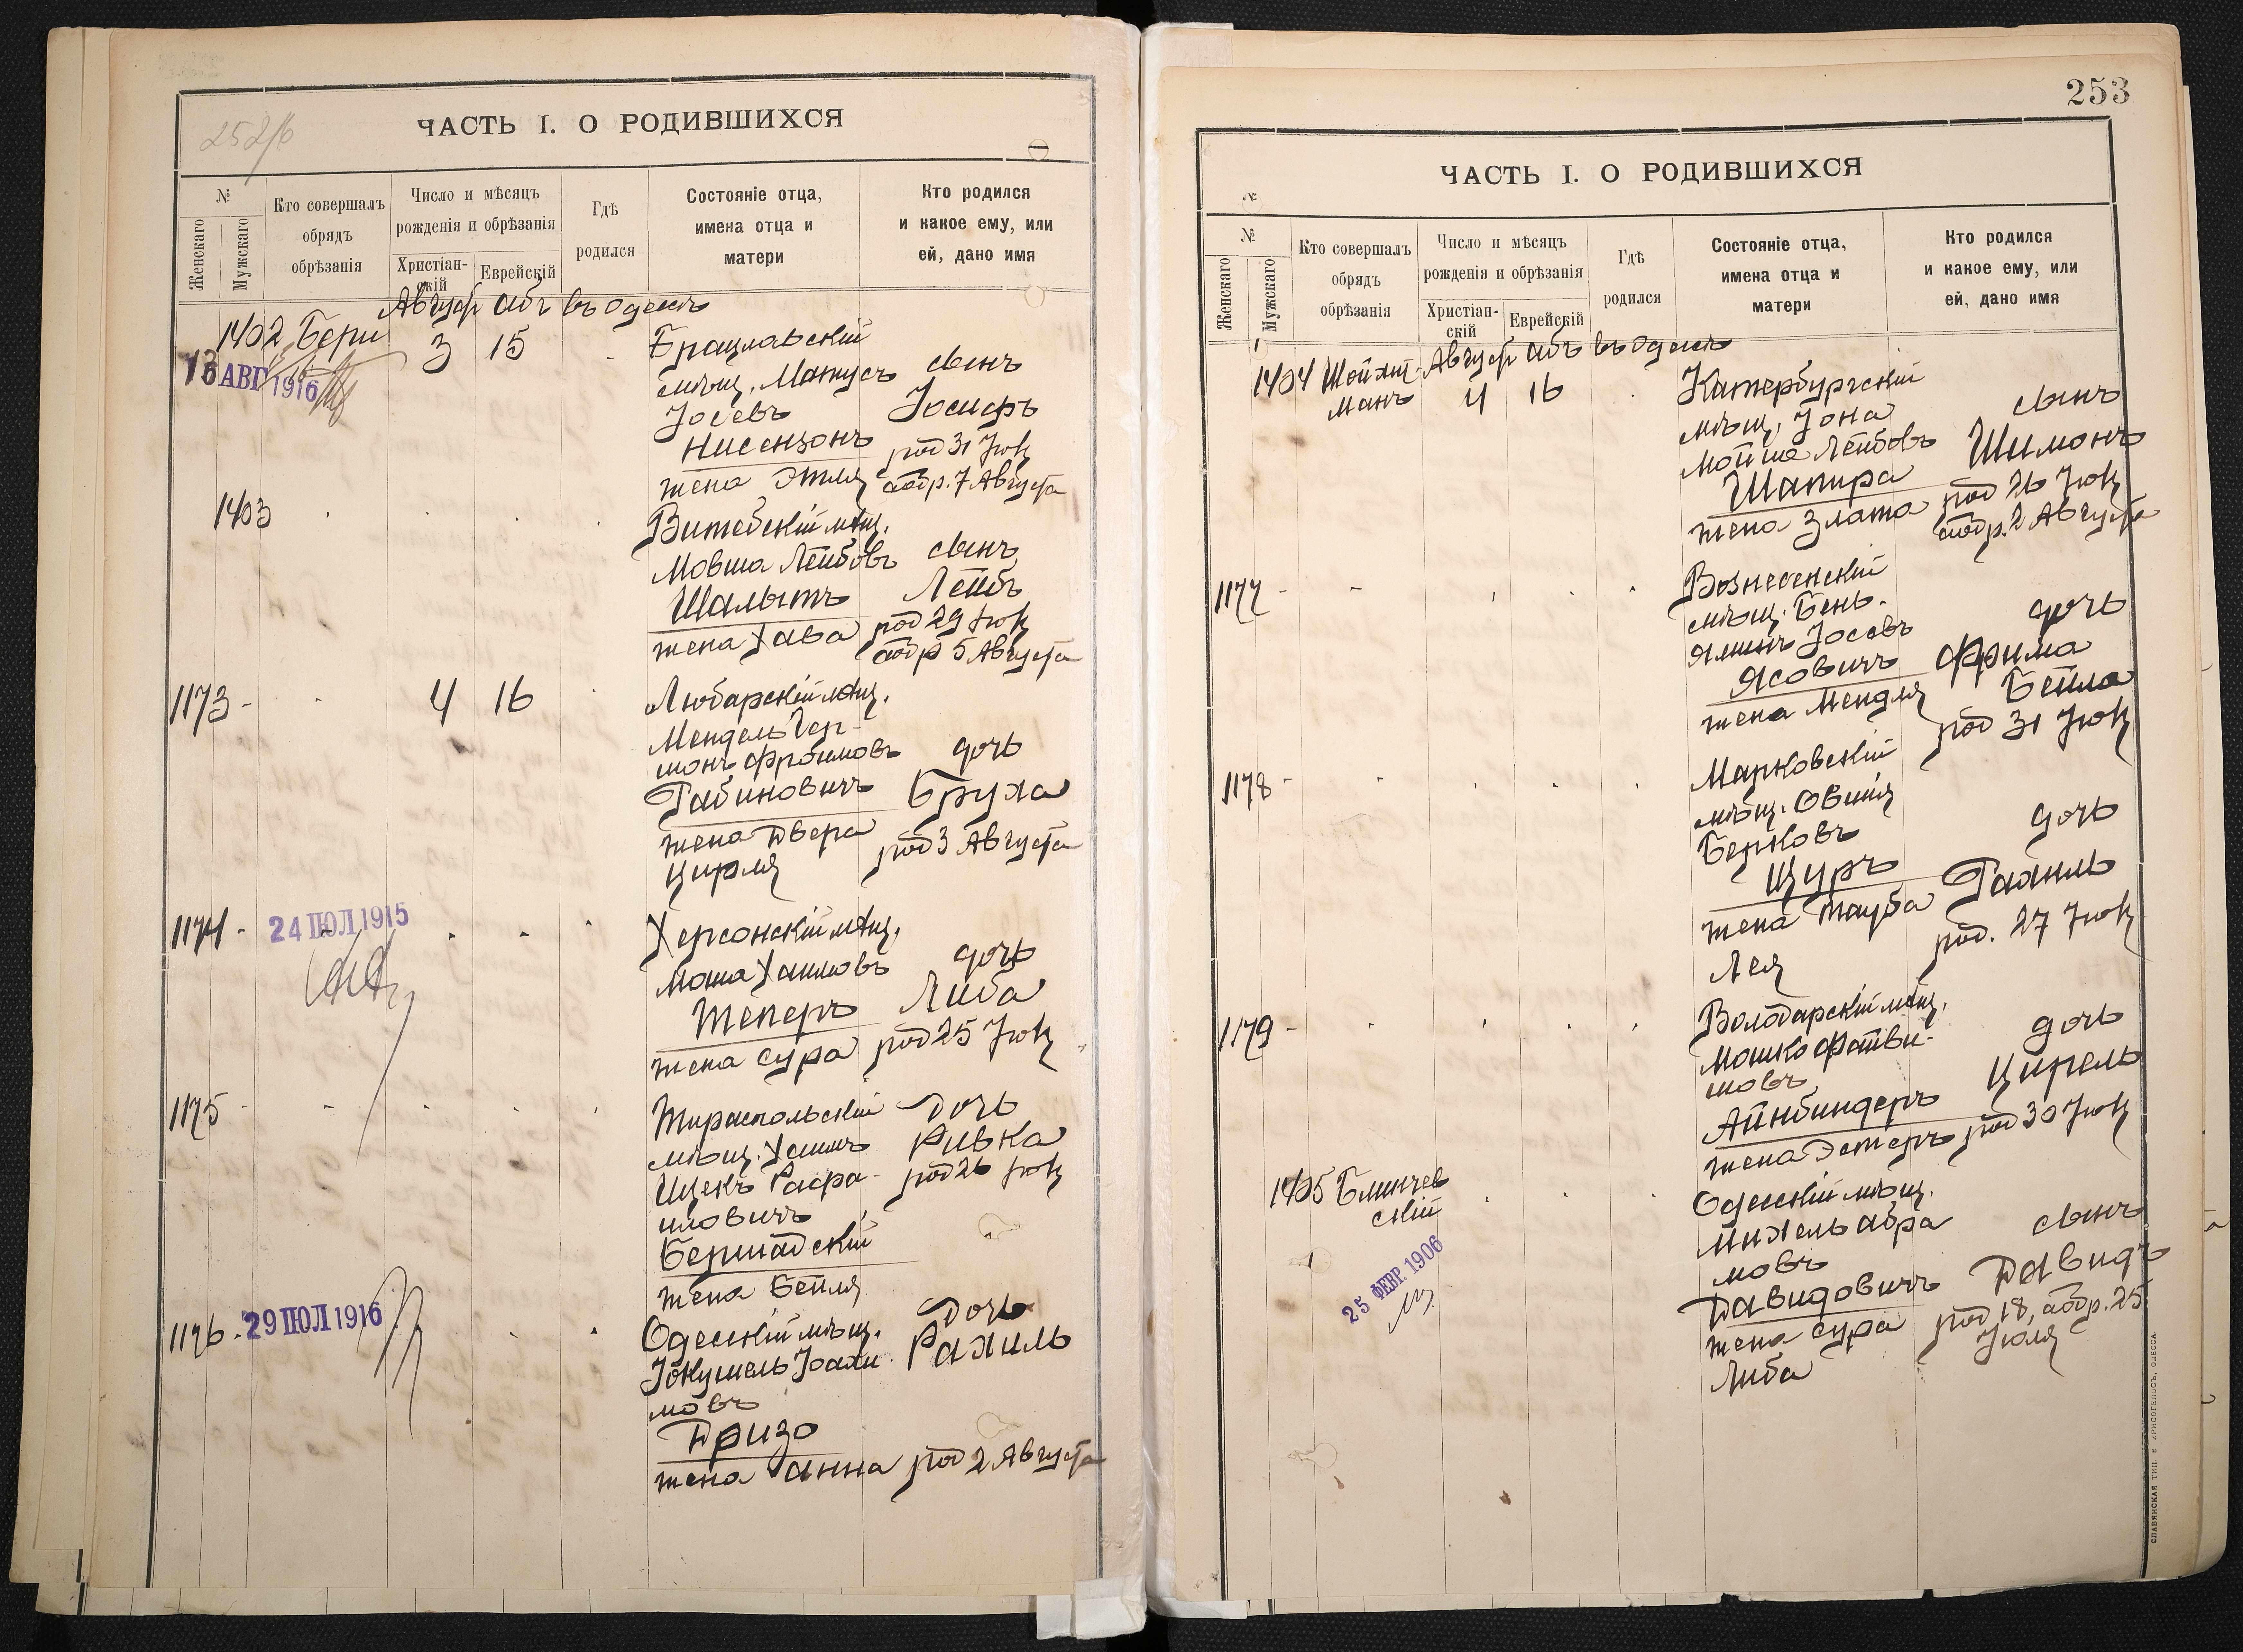 252/б
ЧАСТЬ I. О РОДИВШИХСЯ
№
Женскаго
Мужскаго
Кто совершалъ
обрядъ
обрѣзанія
Число и мѣсяцъ
рожденія и обрѣзанія
Христіан-
скій
Еврейскій
Гдѣ
родился
Состояніе отца,
имена отца и
матери
Кто родился
и какое ему, или
ей, дано имя
Август Абъ въ Одессѣ
1402 Бери 3 15
13 АВГ 1916
Брацлавскій
мѣщ. Матусъ
Іосевъ
Нисензонъ
жена Этля
сынъ
Іосифъ
род 31 Іюля
обр. 7 Августа
1403
Витебскій мѣщ.
Мовша Лейбовъ
Шалытъ
жена Хава
сынъ
Лейбъ
род 29 Іюля
обр 5 Августа
1173 - 4 16
Любарскій мѣщ.
Мендель Гер-
шонъ Фроимовъ
Рабиновичъ
жена Двера
Цирля
дочь
Бруха
род 3 Августа
1174 - 24 ІЮЛ 1915
Херсонскій мѣщ.
Моша Хаимовъ
Теперъ
жена Сура
дочь
Либа
род 25 Іюля
1175 -
Тираспольскій
мѣщ. Хаимъ
Ицекъ Рафа-
иловичъ
Бершадскій
жена Бейля
Дочь
Ривка
род 26 Іюля
1176 - 29 ІЮЛ 1916
Одесскій мѣщ.
Іокушель Іоахи
мовъ
Дризо
жена Анна
Дочь
Рахиль
род 2 Августа
253
ЧАСТЬ I. О РОДИВШИХСЯ
№
№
Женскаго
Мужскаго
Кто совершалъ
обрядъ
обрѣзанія
Число и мѣсяцъ
рожденія и обрѣзанія
Христіан-
скій
Еврейскій
Гдѣ
родился
Состояніе отца,
имена отца и
матери
Кто родился
и какое ему, или
ей, дано имя
Август Абъ въ Одессѣ
1404 Шойхт-
манъ 4 16
Катербургскій
мѣщ. Іона
Мойше Лейбовъ
Шапира
жена Злата
сынъ
Шимонъ
род 26 Іюля
обр. 2 Августа
1177 -
Вознесенскій
мѣщ. Бень-
яминъ Іосевъ
Ясовичъ
жена Мендля
дочь
Фрима
Бейла
род 31 Іюля
1178 -
Марковскій
мѣщ. Овшія
Берковъ
Щуръ
жена Тауба
Лея
дочь
Рахиль
род. 27 Іюля
1179 -
Володарскій мѣщ.
Мошко Файви-
шовъ
Айнбиндеръ
жена Эстеръ
дочь
Цирель
род 30 Іюля
1405 Блинчев
скій
25 ФЕВР. 1906
Одесскій мѣщ.
Михель Абра
мовъ
Давидовичъ
жена Сура
Либа
сынъ
Давидъ
род 18, обр. 25
Іюля
СЛАВЯНСКАЯ ТИП. Е. ХРИСОГЕЛОСЪ, ОДЕССА.